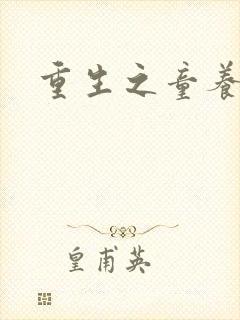 重生之童养
皇甫英